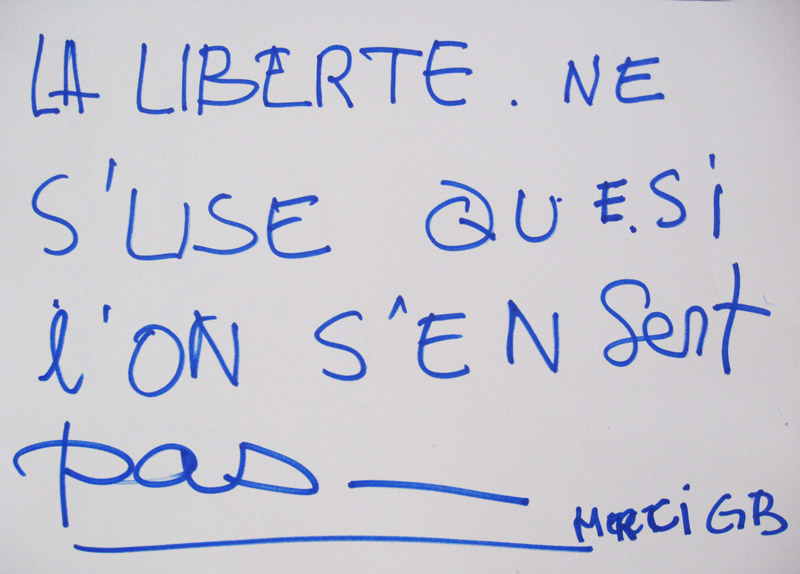 LA LIBERTE. NE
S'USE QUE.SI
l'ON S'EN Sent
pas —
MERCI GB